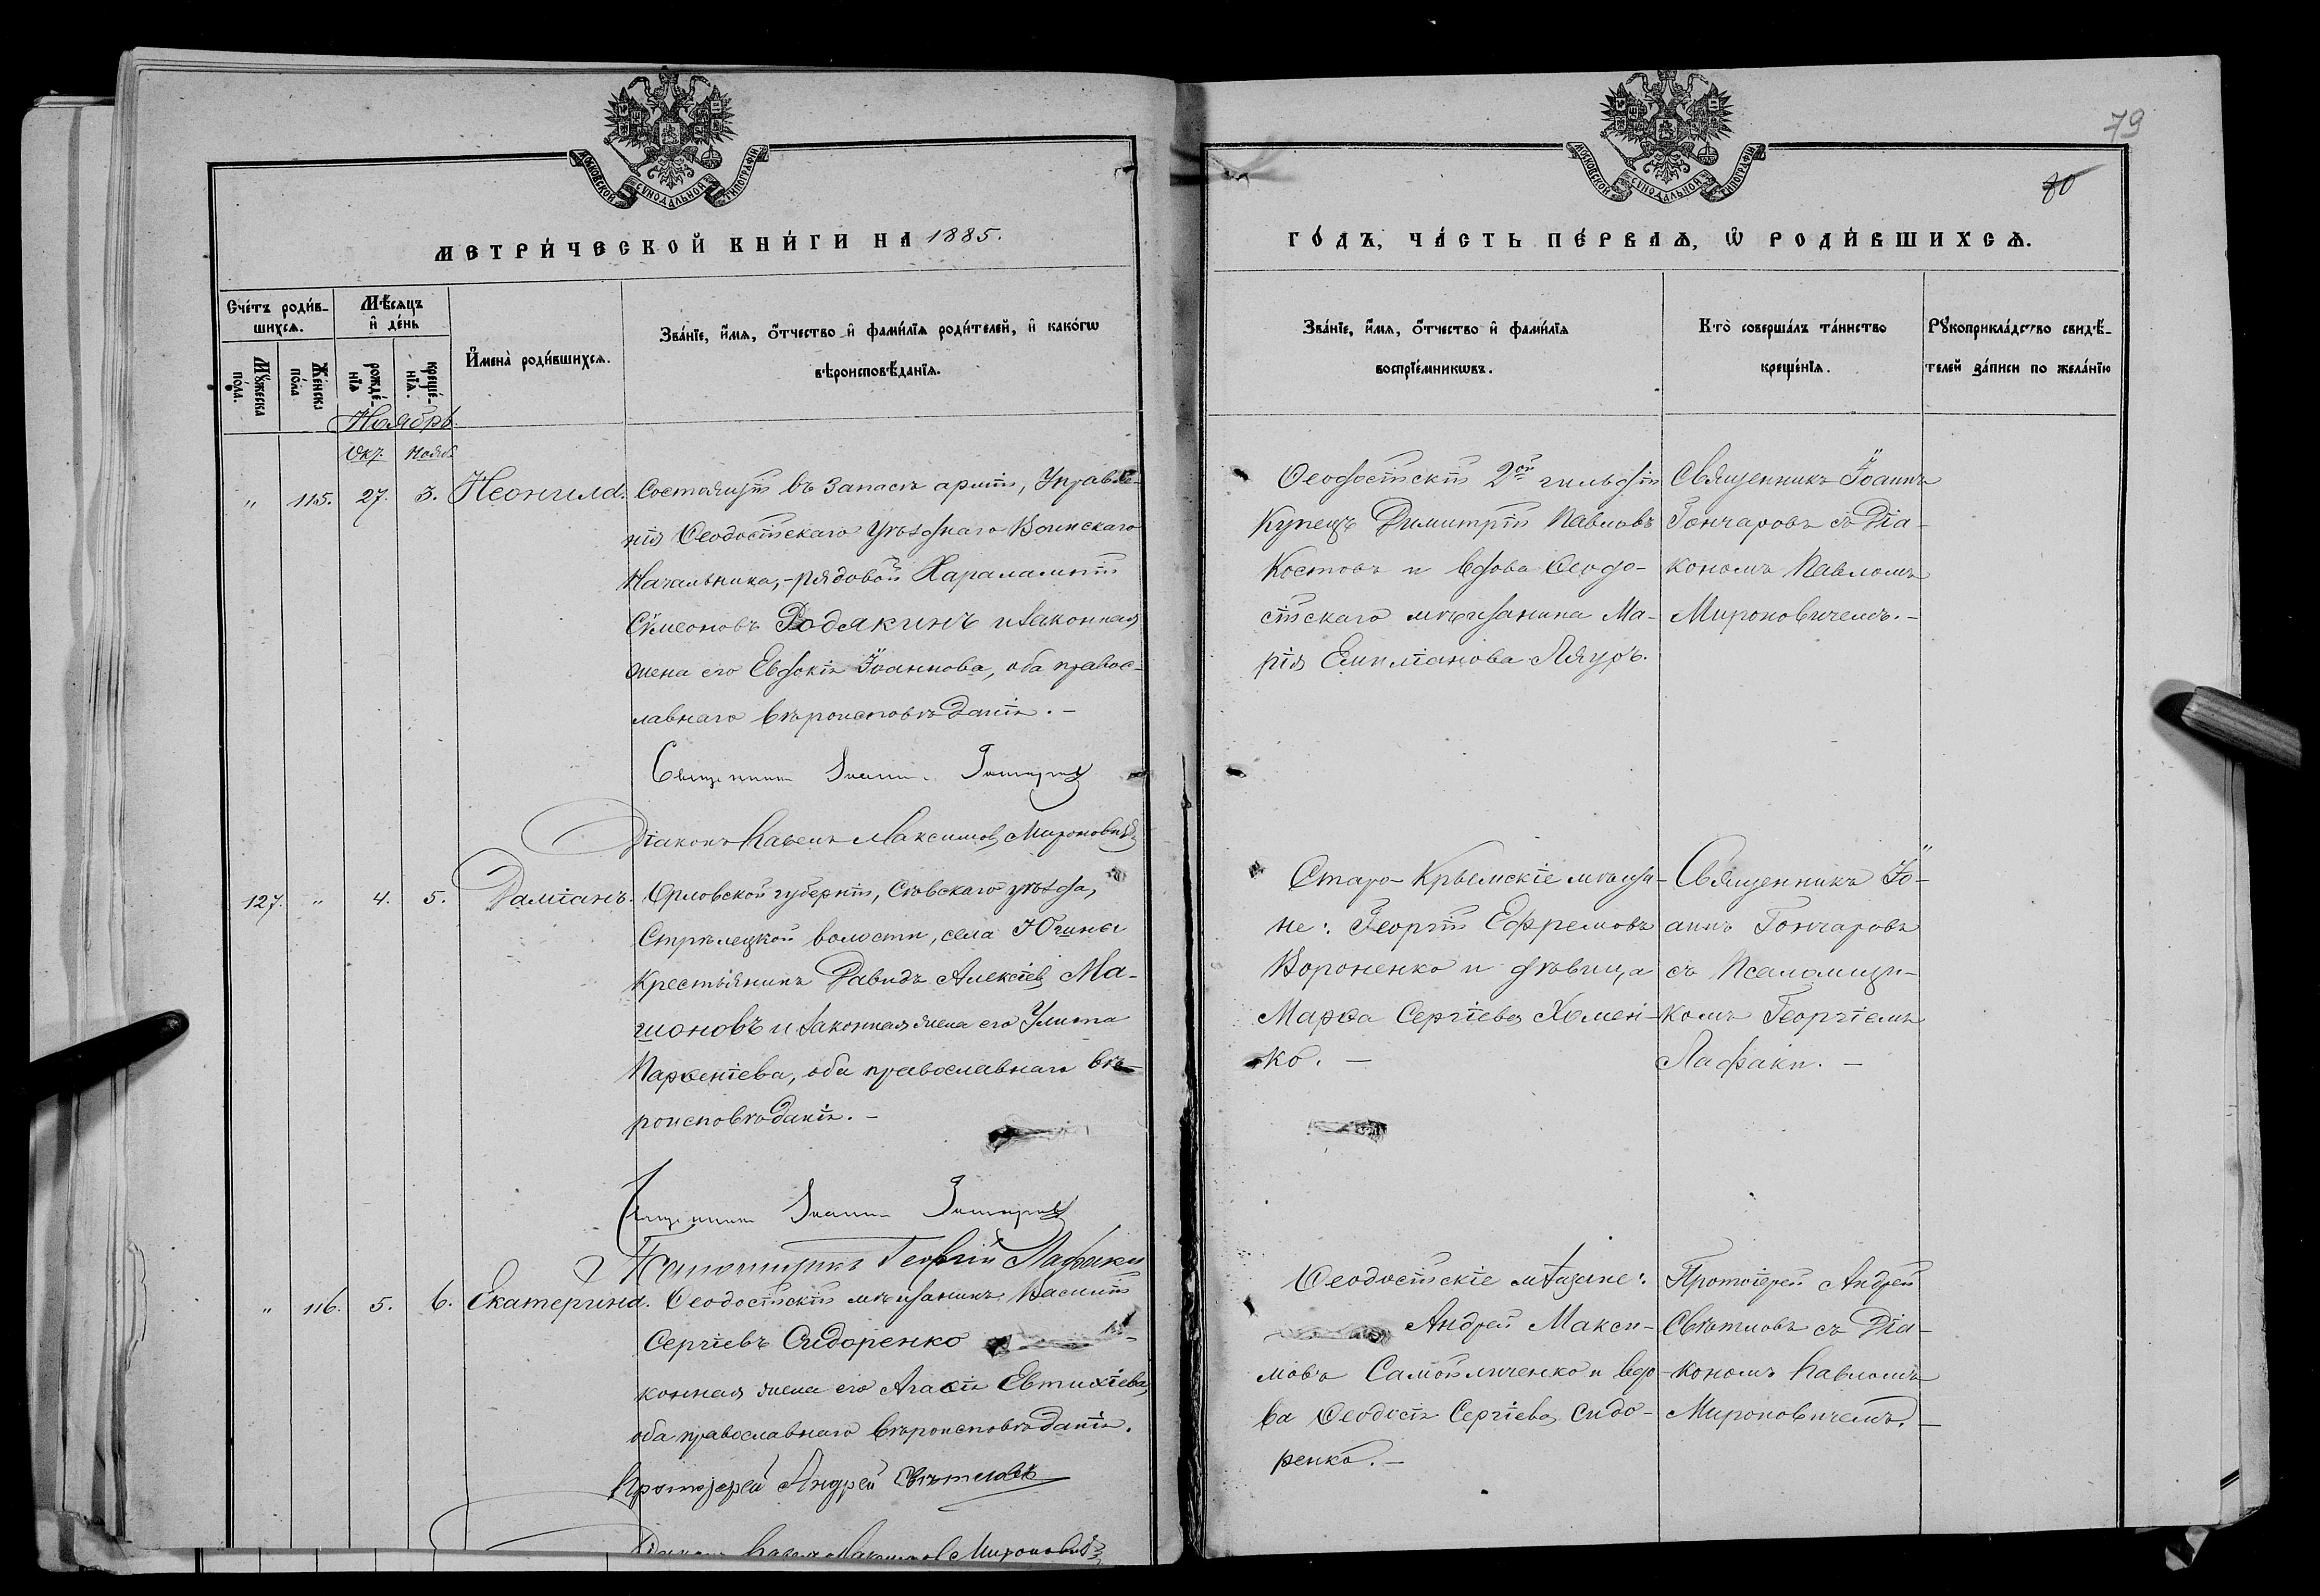 МОСКОВСКОЙ СѴНОДАЛЬНОЙ ТИПОГРАФІИ
МЕТРИ́ЧЕСКОЙ КНИ́ГИ НА 1885.
Сче́тъ роди́в-
шихсѧ.
Мѣ́сѧцъ
и҆ де́нь
Мꙋ́жеска
по́ла.
Же́нска
по́ла
рожде́-
нїѧ
креще́-
нїѧ.
И҆мена̀ роди́вшихсѧ.
Зва́нїе, и҆́мѧ, ѻ҆́тчество и҆ фами́лїѧ роди́телей, и҆ како́гѡ
вѣроисповѣ́данїѧ.
Ноябрь.
Окт. Нояб.
" 115. 27. 3. Неонила. Состоящій въ запасѣ арміи, Управле-
нія Ѳеодосійскаго Уѣзднаго Воинскаго
Начальника,-рядовой Харалампій
Сѵмеоновъ Родякинъ и законная
жена его Евдокія Іоаннова, оба правос-
лавнаго вѣроисповѣданія. -
Священникъ Іоаннъ Гончаровъ
Діаконъ Павелъ Максимовъ Мироновичъ
127. " 4. 5. Даміанъ. Орловской губерніи, Сѣвскаго уѣзда,
Стрѣлецкой волости, села Юшины
Крестьянинъ Давидъ Алексіевъ Ма-
шоновъ и законная жена его Улита
Парѳеніева, оба православнаго вѣ-
роисповѣданія. -
Священникъ Іоаннъ Гончаровъ
Псаломщикъ Георгій Лафаки
" 116. 5. 6. Екатерина. Ѳеодосійскій мѣщанинъ Василій
Сергіевъ Сидоренко
конная жена его Агаѳія Евтихіева,
оба православнаго вѣроисповѣданія.
Протоіерей Андрей Свѣтловъ
Діаконъ Павелъ Максимовъ Мироновичъ
79
80
МОСКОВСКОЙ СѴНОДАЛЬНОЙ ТИПОГРАФІИ
ГО́ДЪ, ЧА́СТЬ ПЕ́РВАѦ, Ѡ҆ РОДИ́ВШИХСѦ.
Зва́нїе, и҆́мѧ, ѻ҆́тчество и҆ фами́лїѧ
воспрїе́мникѡвъ.
Кто̀ соверша́лъ та́инство
креще́нїѧ.
Рꙋкоприкла́дство свидѣ́-
телей за́писи по жела́нїю
Ѳеодосійскій 2ой гильдіи
Купецъ Димитрій Павловъ
Костовъ и вдова Ѳеодо-
сійскаго мѣщанина Ма-
рія Емиліанова Ляуръ.
Священникъ Іоаннъ
Гончаровъ съ Діа-
кономъ Павломъ
Мироновичемъ. -
Старо-Крымскіе мѣща-
не: Георгій Ефремовъ
Вороненко и дѣвица
Марѳа Сергіева Хомен-
ко. -
Священникъ Іо-
аннъ Гончаровъ
съ Псаломщи-
комъ Георгіемъ
Лафаки. -
Ѳеодосійскіе мѣщане:
Андрей Макси-
мовъ Самойличенко и вдо-
ва Ѳеодосія Сергіева Сидо-
ренко. -
Протоіерей Андрей
Свѣтловъ съ Діа-
кономъ Павломъ
Мироновичемъ. -